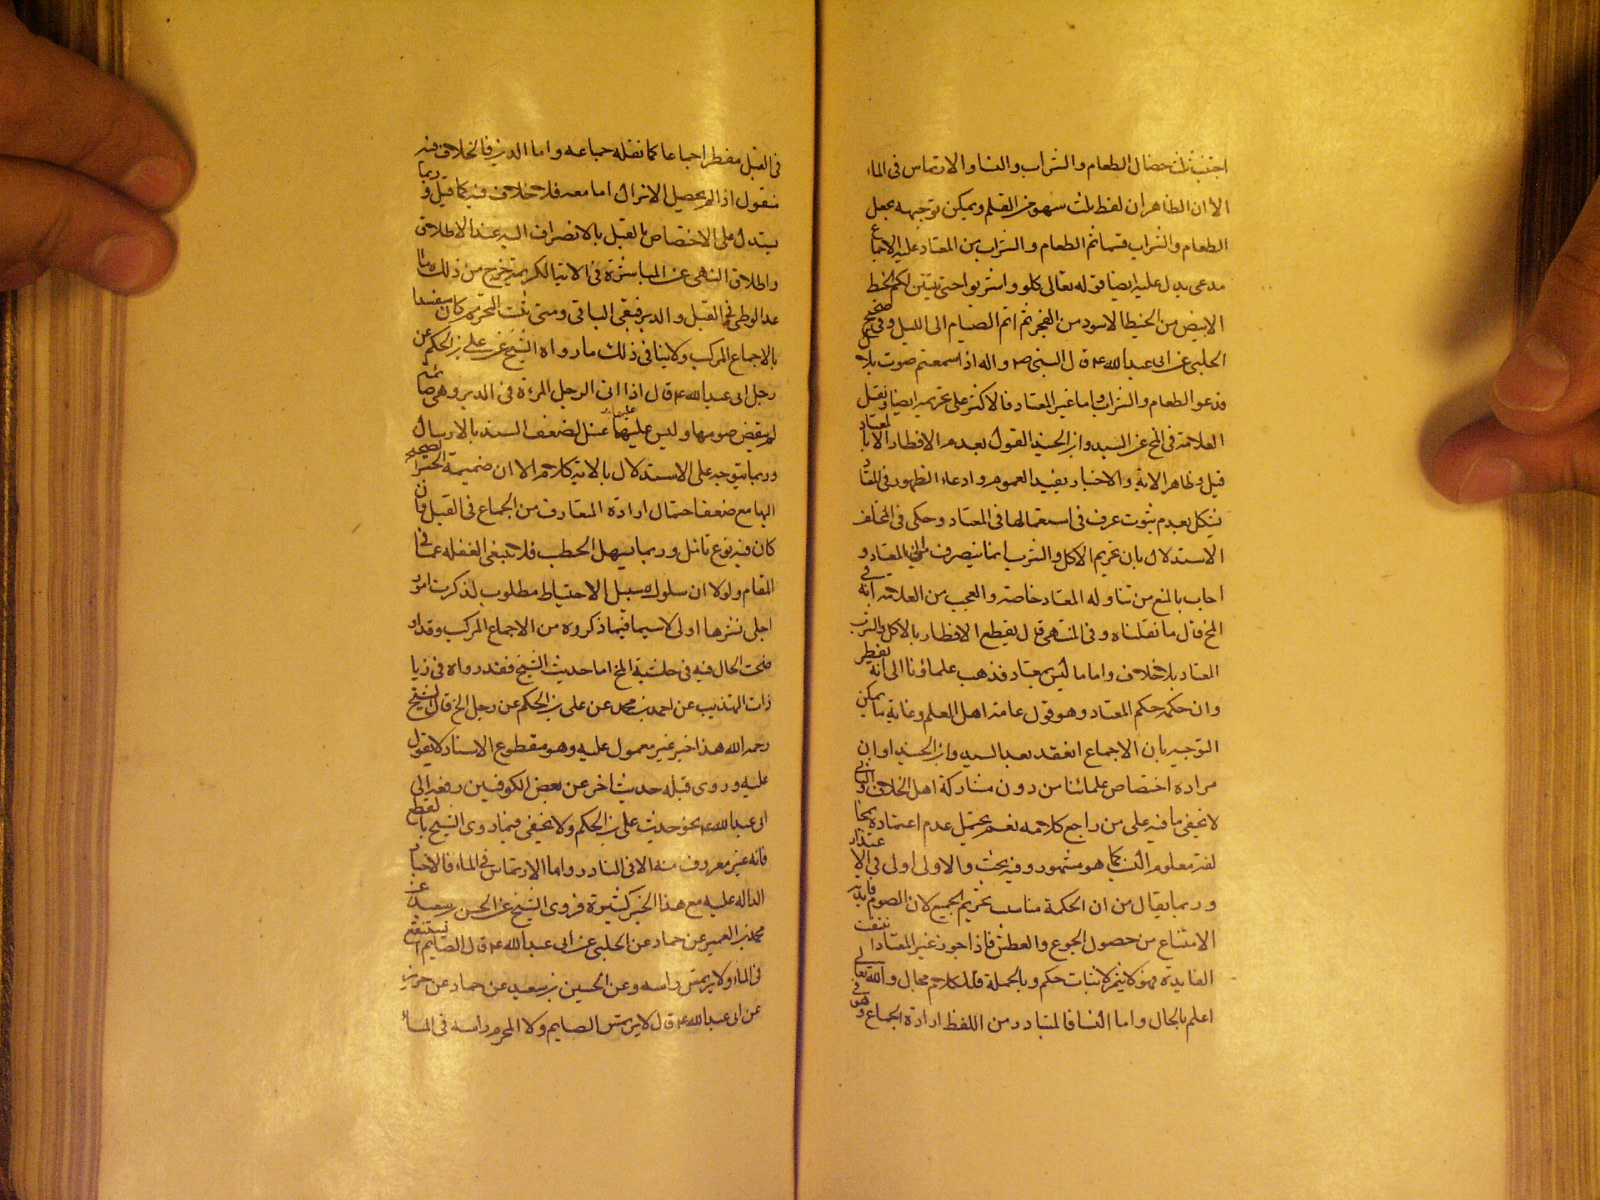 اجتنب ثلث خصال الطعام والشراب والنساء والارتماس فى الماء
الا ان الظاهر ان لفظ ثلث سهو من القلم ويمكن توجيهه بجعل
الطعام والشراب قسما ثم الطعام والشراب من المعتاد عليه الاجماع
مدعى يدل عليه ايضا قوله تعالى كلوا واشربوا حتى يتبين لكم الخيط
الابيض من الخيط الاسود من الفجر ثم اتموا الصيام الى الليل وفى صحيح
الحلبى عن ابى عبدالله ع قال النبى ص واله اذا سمعتم صوت بلال
فدعوا الطعام والشراب واما غير المعتاد فالاكثر على تحريمه ايضا ونقل
العلامة فى المخ عن السيد وابن الجنيد القول بعدم الافطار الا بالمعتاد
قيل وظاهر الاية والاخبار يفيد العموم وادعاء الظهور فى المعتاد
يشكل بعدم ثبوت عرف فى استعمالها فى المعتاد وحكى فى المختلف
الاستدلال بان تحريم الاكل والشرب انما ينصرف الى المعتاد و
اجاب بالمنع من تناوله المعتاد خاصة والعجب من العلامة انه فى
المخ قال ما نقلناه وفى المنتهى قال يقطع الافطار بالاكل والشرب
المعتاد بلا خلاف واما ما ليس بمعتاد فذهب علماؤنا الى انه يفطر
وان حكمه حكم المعتاد وهو قول عامة اهل العلم وغاية ما يمكن
التوجيه بان الاجماع انعقد بعد السيد وابن الجنيد او ان
مراده اختصاص علمائنا من دون مشاركة اهل الخلاف
لا يخفى ما فيه على من راجع كلامه نعم يحتمل عدم اعتماده بمخا
لفة معلوم النسب كما هو مشهور وفيه بحث والاولى اولى فى الاعتذار
وربما يقال من ان الحكمة مناسب تحريم الجميع لان الصوم فايدته
الامتناع من حصول الجوع والعطش فاذا جوز غير المعتاد انتفت
الفايدة فهو كلا يثمر لاثبات حكم وبالجملة فللكلام مجال والله تعالى
اعلم بالحال واما النساء فالمتبادر من اللفظ ارادة الجماع وهو فى
فى القبل مفطر اجماعا كما نقله جماعه واما الدبر فالخلاف فيه
منقول اذا لم يحصل الانزال اما معه فلا خلاف فيه كما قيل وربما
يستدل على الاختصاص بالقبل بالانصراف اليه عند الاطلاق
واطلاق النهى عن المباشرة فى الاية الكريمة خرج من ذلك ما
عدا الوطى فى القبل والدبر فبقى الباقى ومتى ثبت التحريم كان مفسدا
بالاجماع المركب ولا ينافى ذلك ما رواه الشيخ عن على بن الحكم عن
رجل ابى عبدالله ع قال اذا اتى الرجل المرءة فى الدبر وهى صائمة
لم ينقض صومها وليس عليها غسل لضعف السند بالارسال
وربما يتوجه على الاستدلال بالاية كلام الا ان ضميمة الخبر الصحيح
اليها مع ضعف احتمال ارادة المتعارف من الجماع فى القبل وان
كان فيه نوع تامل وربما يسهل الخطب فلا ينبغى الغفله عما فى
المقام ولولا ان سلوك سبيل الاحتياط مطلوب لذكرت امور
اجلى نشرها اولى لاسيما فيما ذكروه من الاجماع المركب وقد او
ضحت الحال فيه فى حاشية المخ اما حديث الشيخ فقد رواه فى زيا
دات التهذيب عن احمد بن محمد عن على بن الحكم عن رجل الخ قال الشيخ
رحمه الله هذا خبر غير معمول عليه وهو مقطوع الاسناد لا يعول
عليه وروى قبله حديث اخر عن بعض الكوفيين رفعه الى
ابى عبدالله ع نحو حديث على بن الحكم ولا يخفى فيما روى الشيخ بالقطع
فانه غير معروف منه الا فى النادر واما الارتماس فى الماء فالاخبار
الدالة عليه مع هذا الخبر كثيرة فروى الشيخ عن الحسن بن سعيد عن
محمد بن ابى عمير عن حماد عن الحلبى عن ابى عبدالله ع قال الصايم يستنقع
فى الماء ولا يرمس راسه وعن الحسين بن سعيد عن حماد عن حريز
عن ابى عبدالله ع قال لا يرتمس الصايم ولا المحرم راسه فى الماء